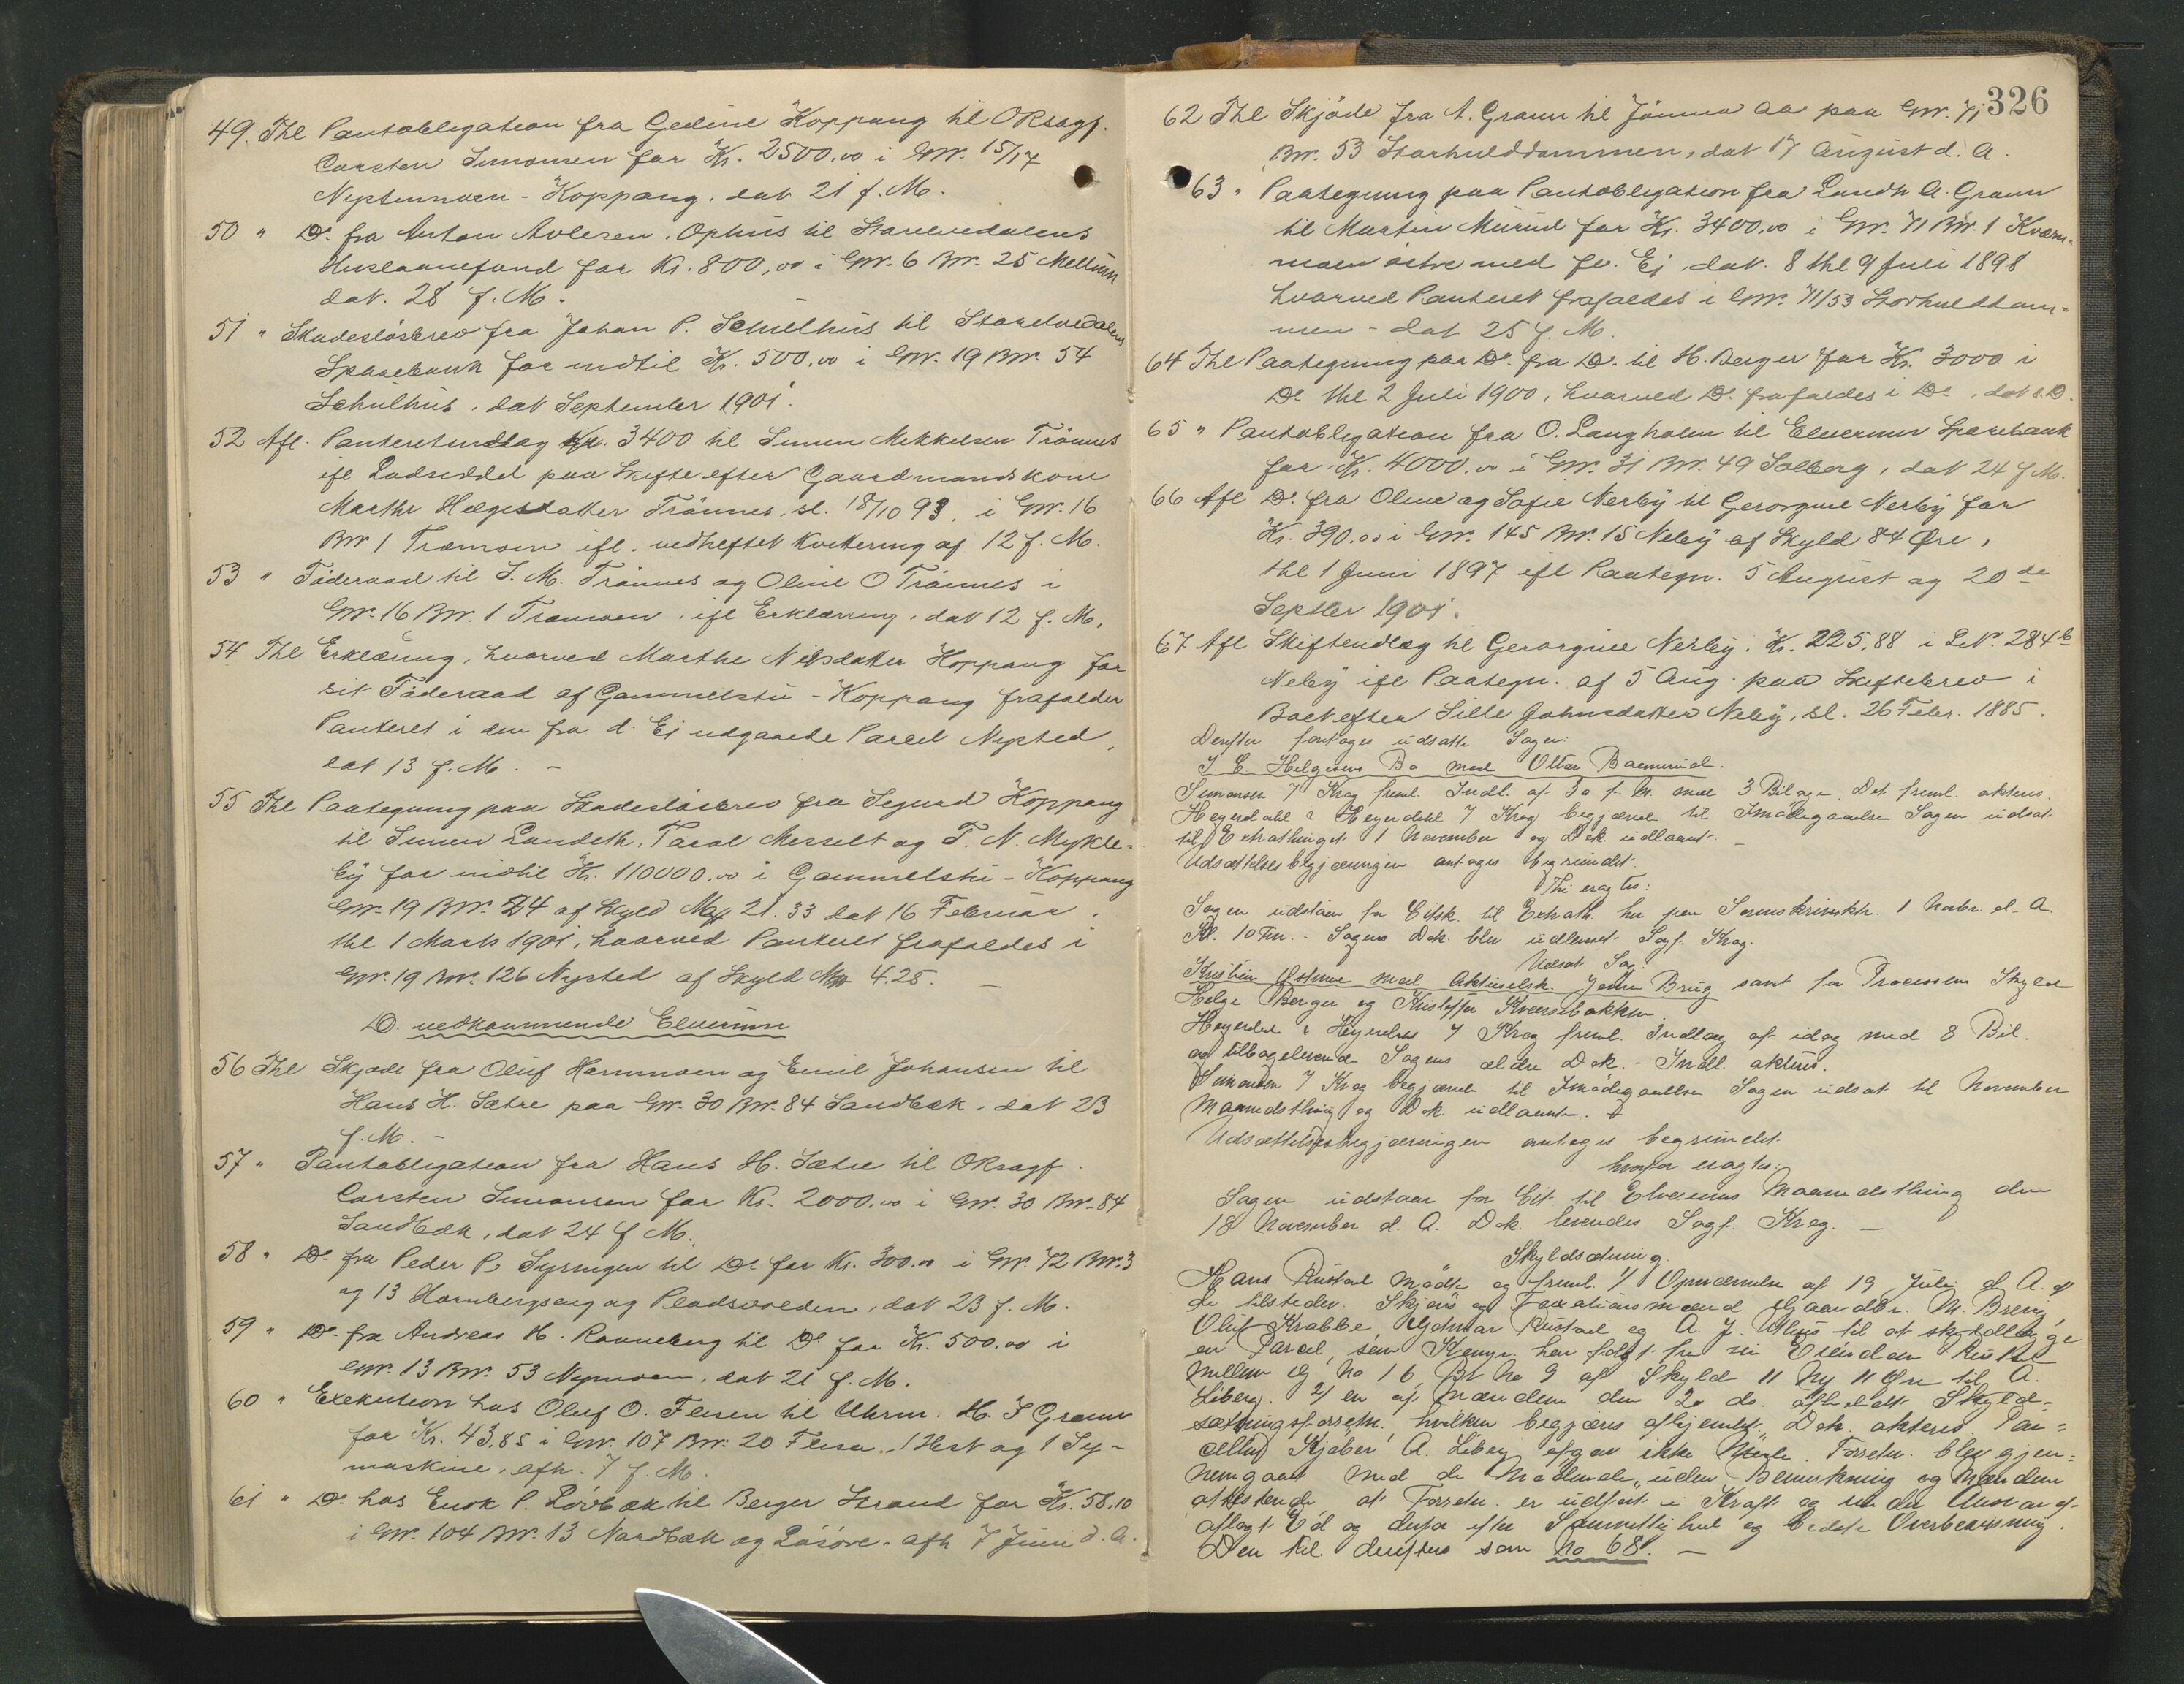 49. Thl Pantobligation fra Gedine Koppang til ORsagf.
Carsten Simonsen for Kr. 2500.00 i Gnr. 15/17
Nystumoen - Koppang, dat 21 f. M.
50 " Do. fra Anton Avlesen. Ophus til Storelvedalens
Huslaanefond for Kr. 800,00 i Gnr. 6 Bnr. 25 Mellum
dat. 28 f. M. -
51 " Skadeslösbrev fra Johan P. Schulhus til Storelvedalens
Sparebank for indtil Kr. 500.00 i Gnr. 19 Bnr. 54
Schulhus, dat September 1901.
52 Afl. Panteretindlæg Kr. 3400 til Simen Mikkelsen Trönnes
ifl Lodseddel paa Skifte efter Gaardmandskone
Marthe Helgesdatter Trönnes, sl. 18/10 93, i Gnr. 16
Bnr 1 Træmoen ifl. vedheftet Kvittering af 12 f. M.
53 " Föderaad til S. M. Trönnes og Oline O Trönnes i
Gnr. 16 Bnr. 1 Træmoen, ifl Erklæring, dat 12 f. M.
54 Thl Erklæring, hvorved Marthe Nilsdatter Koppang for
sit Föderaad af Gammelstu - Koppang frafalder
Panteret i den fra d. Ej udgaaede Parcel Nysted,
dat 13 f. M. -
55 Thl Paategning paa Skadeslösbrev fra Sigurd Koppang
til Simen Landeth, Taral Messelt og T. N. Mykle-
by for indtil Kr. 110000.00 i Gammelstu - Koppang
Gnr. 19 Bnr. 24 af Skyld Mk 21.33 dat 16 Februar,
thl 1 Marts 1901, hvorved Panteret frafaldes i
Gnr. 19 Bnr. 126 Nysted af Skyld Mk 4.25. -
Do. vedkommende Elverum
56 Thl Skjøde fra Oluf Hammoen og Emil Johansen til
Hans H. Sætre paa Gnr. 30 Bnr. 84 Sandbæk, dat 23
f. M. -
57 " Pantobligation fra Hans H. Sætre til ORsagf.
Carsten Simonsen for Kr. 2000.00 i Gnr. 30 Bnr. 84
Sandbæk, dat 24 f M.
58 " Do. fra Peder P. Syringen til Do for Kr. 300.00 i Gnr. 72 Bnr. 3
og 13 Hornbergseng og Pladsvolden, dat 23 f. M.
59 " Do. fra Andreas H. Ronneberg til Do for Kr. 500.00 i
Gnr. 13 Bnr. 53 Nymoen, dat 21 f. M.
60 " Exekution hos Oluf O. Flisen til Uhrm. H. J Gram
for Kr. 43,85 i Gnr. 107 Bnr. 20 Flisa, 1 Hest og 1 Sy-
maskine, afh. 7 f. M.
61 " Do. hos Enok P. Lövbæk til Berger Strand for Kr. 58.10
i Gnr. 104 Bnr. 13 Nordbæk og Lösöre. afh 7 Juni d. A.
326
62 Thl Skjöde fra A. Graun til Jömna aa paa Gnr. 71
Bnr. 53 Storhulddammen, dat 17 August d. A.
63 " Paategning paa Pantobligation fra Landh A. Graun
til Martin Murud for Kr. 3400.00 i Gnr. 71 Bnr. 1 Kværn-
moen östre med fl. Ej. dat. 8 thl 9 Juli 1898
hvorved Panteret frafaldes i Gnr. 71/53 Storhulddam-
men - dat 25 f. M.
64 Thl Paategning paa Do. fra Do. til H. Berger for Kr. 3000 i
Do thl 2 Juli 1900, hvorved Do. frafaldes i Do, dat s. D.
65 " Pantobligation fra O. Langholen til Elverum Sparebank
for Kr. 4000.00 i Gnr. 31 Bnr. 49 Solberg, dat 24 f M.
66 Afl Do. fra Oline og Sofie Nerby til Gerorgine Nerby for
Kr. 390.00 i Gnr. 145 Bnr. 15 Neby af Skyld 84 Øre,
thl 1 Juni 1897 ifl Paategn. 5 August og 20de
Septber 1901.
67 Afl Skifteudlæg til Gerorgine Nerby. Kr. 225,88 i LNo. 284b
Neby ifl Paategn. af 5 Aug. paa Skiftebrev i
Boet efter Sille Johnsdatter Neby, sl. 26 Febr. 1885.
Derefter foretoges udsatte Sager:
J. C. Helgesens Bo mod Ottar Bæmerud.
Simonsen 7 Krag freml. Indl. af 30 f. M. med 3 Bilage. Det freml. akteres.
Heyerdahl 7 Heyerdahl 7 Krag begjærede til Imödegaaelse Sagen udsat
til Extrathinget 1 November og Dok. udlaant. -
Udsættelsesbegjæringen antages begrundet.
Thi eragtes:
Sagen udstaar for Citsk. til Extrath. her paa Sorenskriverktr. 1 Novbr. d. A.
Kl. 10 Fm. - Sagens Dok. blev udlaant Sagf. Krag.
Udsat Sag:
Kristian Östmoe mod Aktieselsk. Jömna Brug samt for Processens Skyld
Helge Berger og Kristoffer Kværnbakken.
Heyerdahl 7 Heyerdahl 7 Krag freml. Indlæg af idag med 8 Bil.
og tilbageleverede Sagens ældre Dok. - Indl. akteres.
Simonsen 7 Krag begjærede til Imödegaaelse Sagen udsat til November
Maanedsthing og Dok. udlaante.
Udsættelsesbegjæringen antages begrundet
hvorfor eragtes:
Sagen udstaar for Cit. til Elverums Maanedsthing den
18 November d. A. Dok. leveredes Sagf. Krag. -
Skyldsætning.
Hans Rustad mödte og freml. 1/ Opnævnelse af 19 Juli d A. af
de tilstedev. Skjöns og Taxationsmænd Gaardbr. M. Breng,
Oluf Krabbe, Hjelmar Rustad og A. J. til at skyldlægge
en Parcel, som Komp. har solgt fra sin Eiendom Rustad
mellem G No 16, B No 9 af Skyld 11 Ny 11 Øre til A.
Liberg. 2/ en af Mændene den 20 ds. afholdt Skyld-
sætningsforretn. hvilken begjæres afhjemlet. Dok. akteres. Par-
cellens Kjøber A. Liberg afgav ikke Møde. Forretn. blev gjen-
nemgaaet med de Mödende, uden Bemærkning og Mændene
attesterede at Forretn. er udført i Kraft og under Ansvar af
aflagt Ed og derfor efter Samvittighed og bedste Overbevisning.
Den thl. derefter som No 68. -